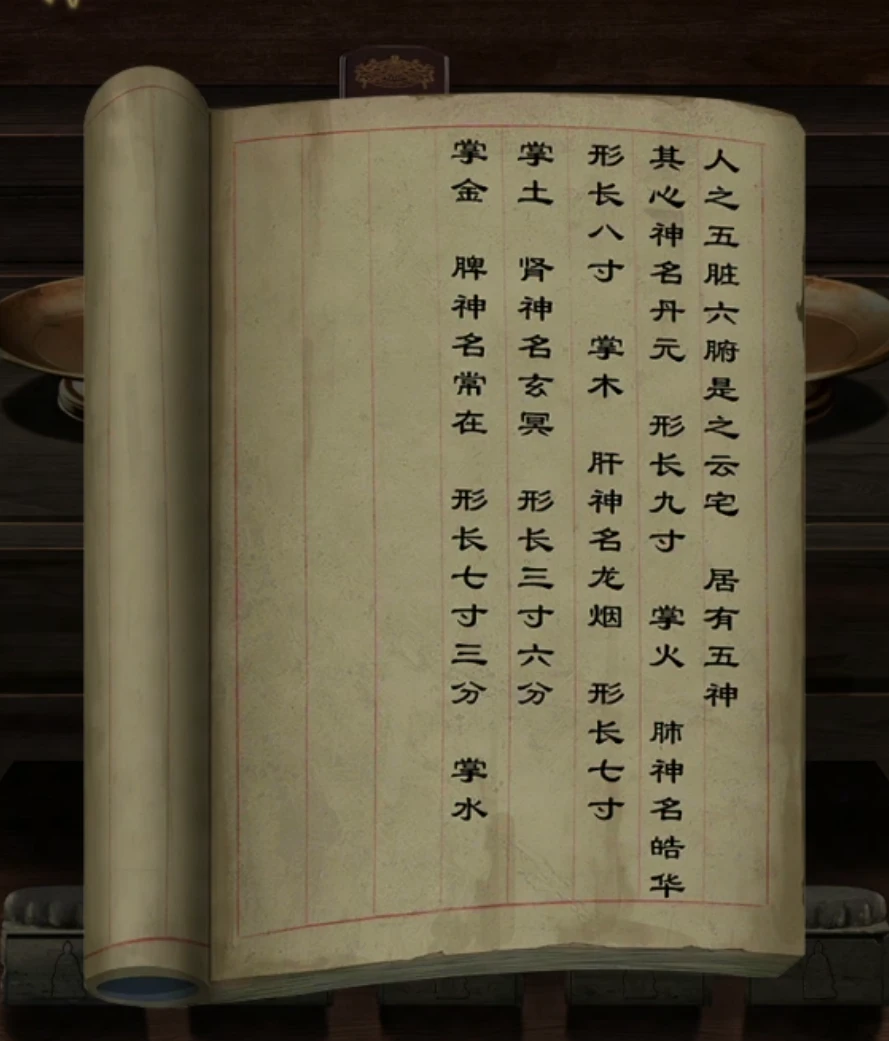 人之五脏六腑是之云宅 居有五神
其心神名丹元 形长九寸 掌火 肺神名皓华
形长八寸 掌木 肝神名龙烟 形长七寸
掌土 肾神名玄冥 形长三寸六分
掌金 脾神名常在 形长七寸三分 掌水